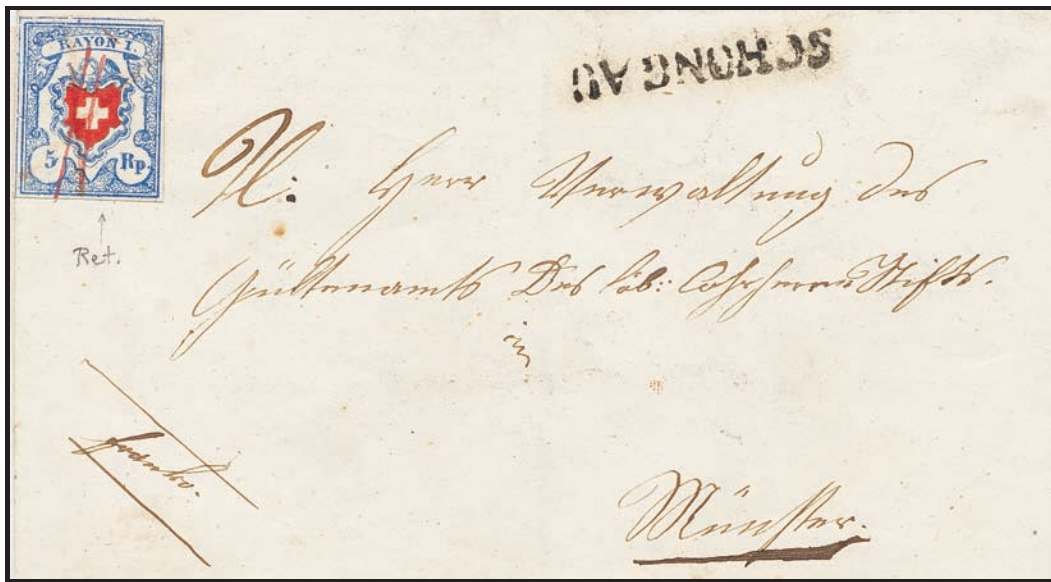 RAYON I.
5 Rp.
SCHONGAU
Ret.
Herr Verwaltung des
Gültenamts Des löb: Chorherren Stifts.
in
franko.
Münster.